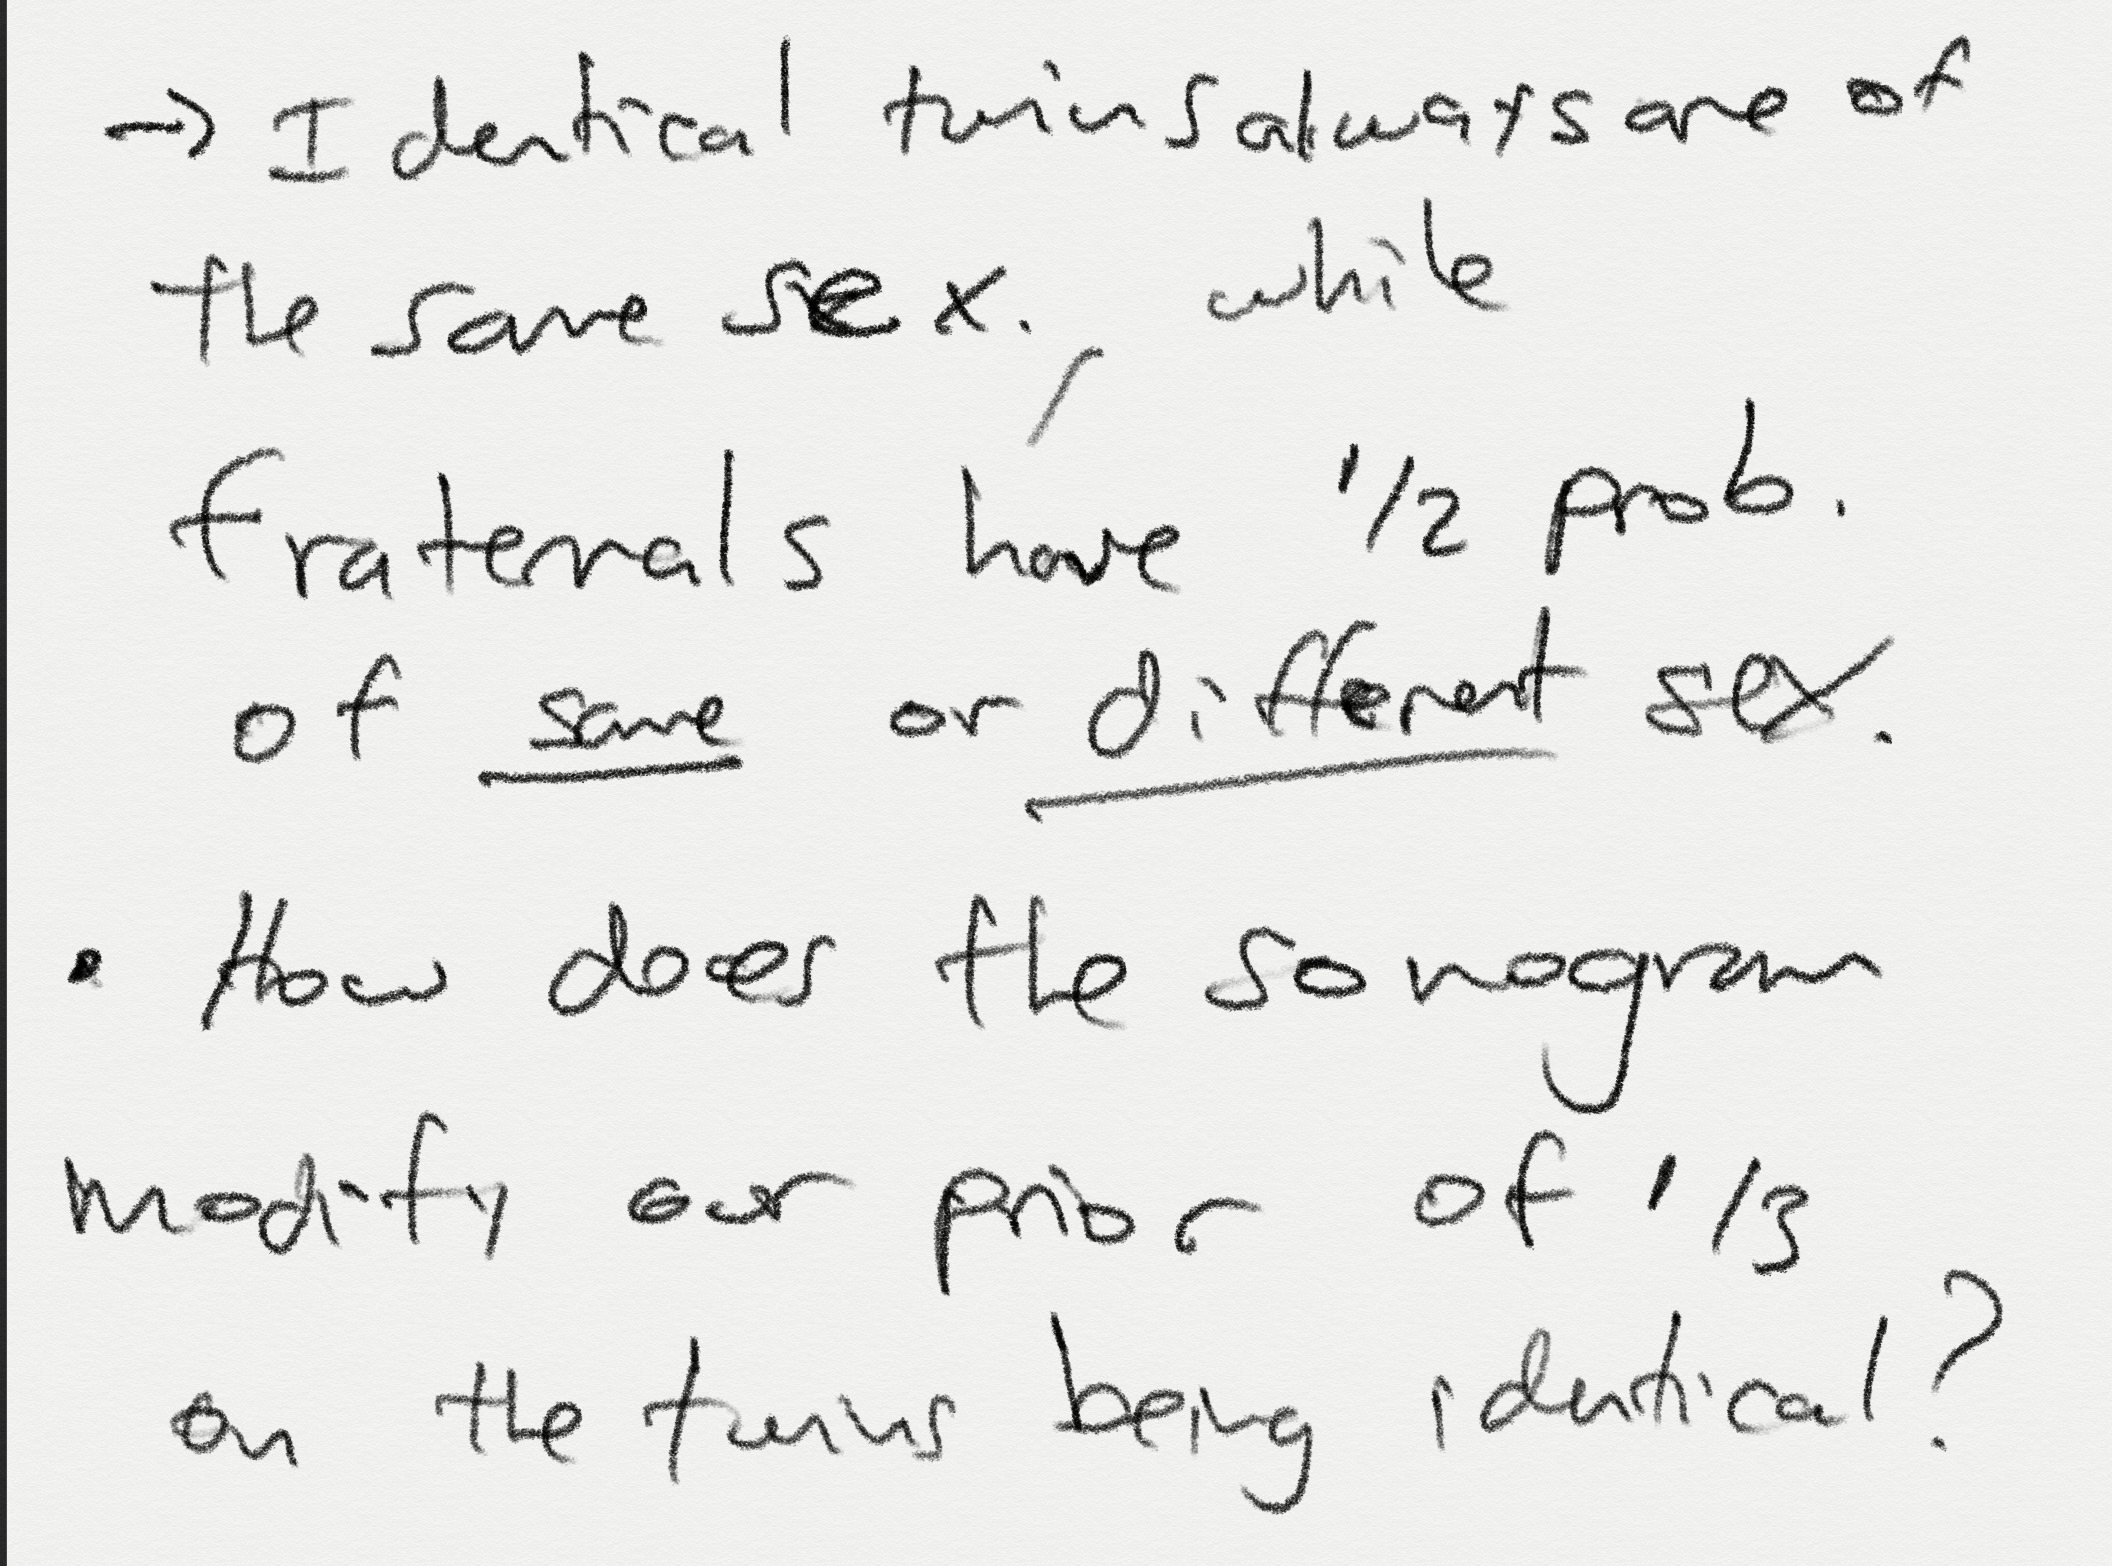 → Identical twins always are of
the same sex, while
fraternals have 1/2 prob.
of same or different sex.
• How does the sonogram
modify our prior of 1/3
on the twins being identical?